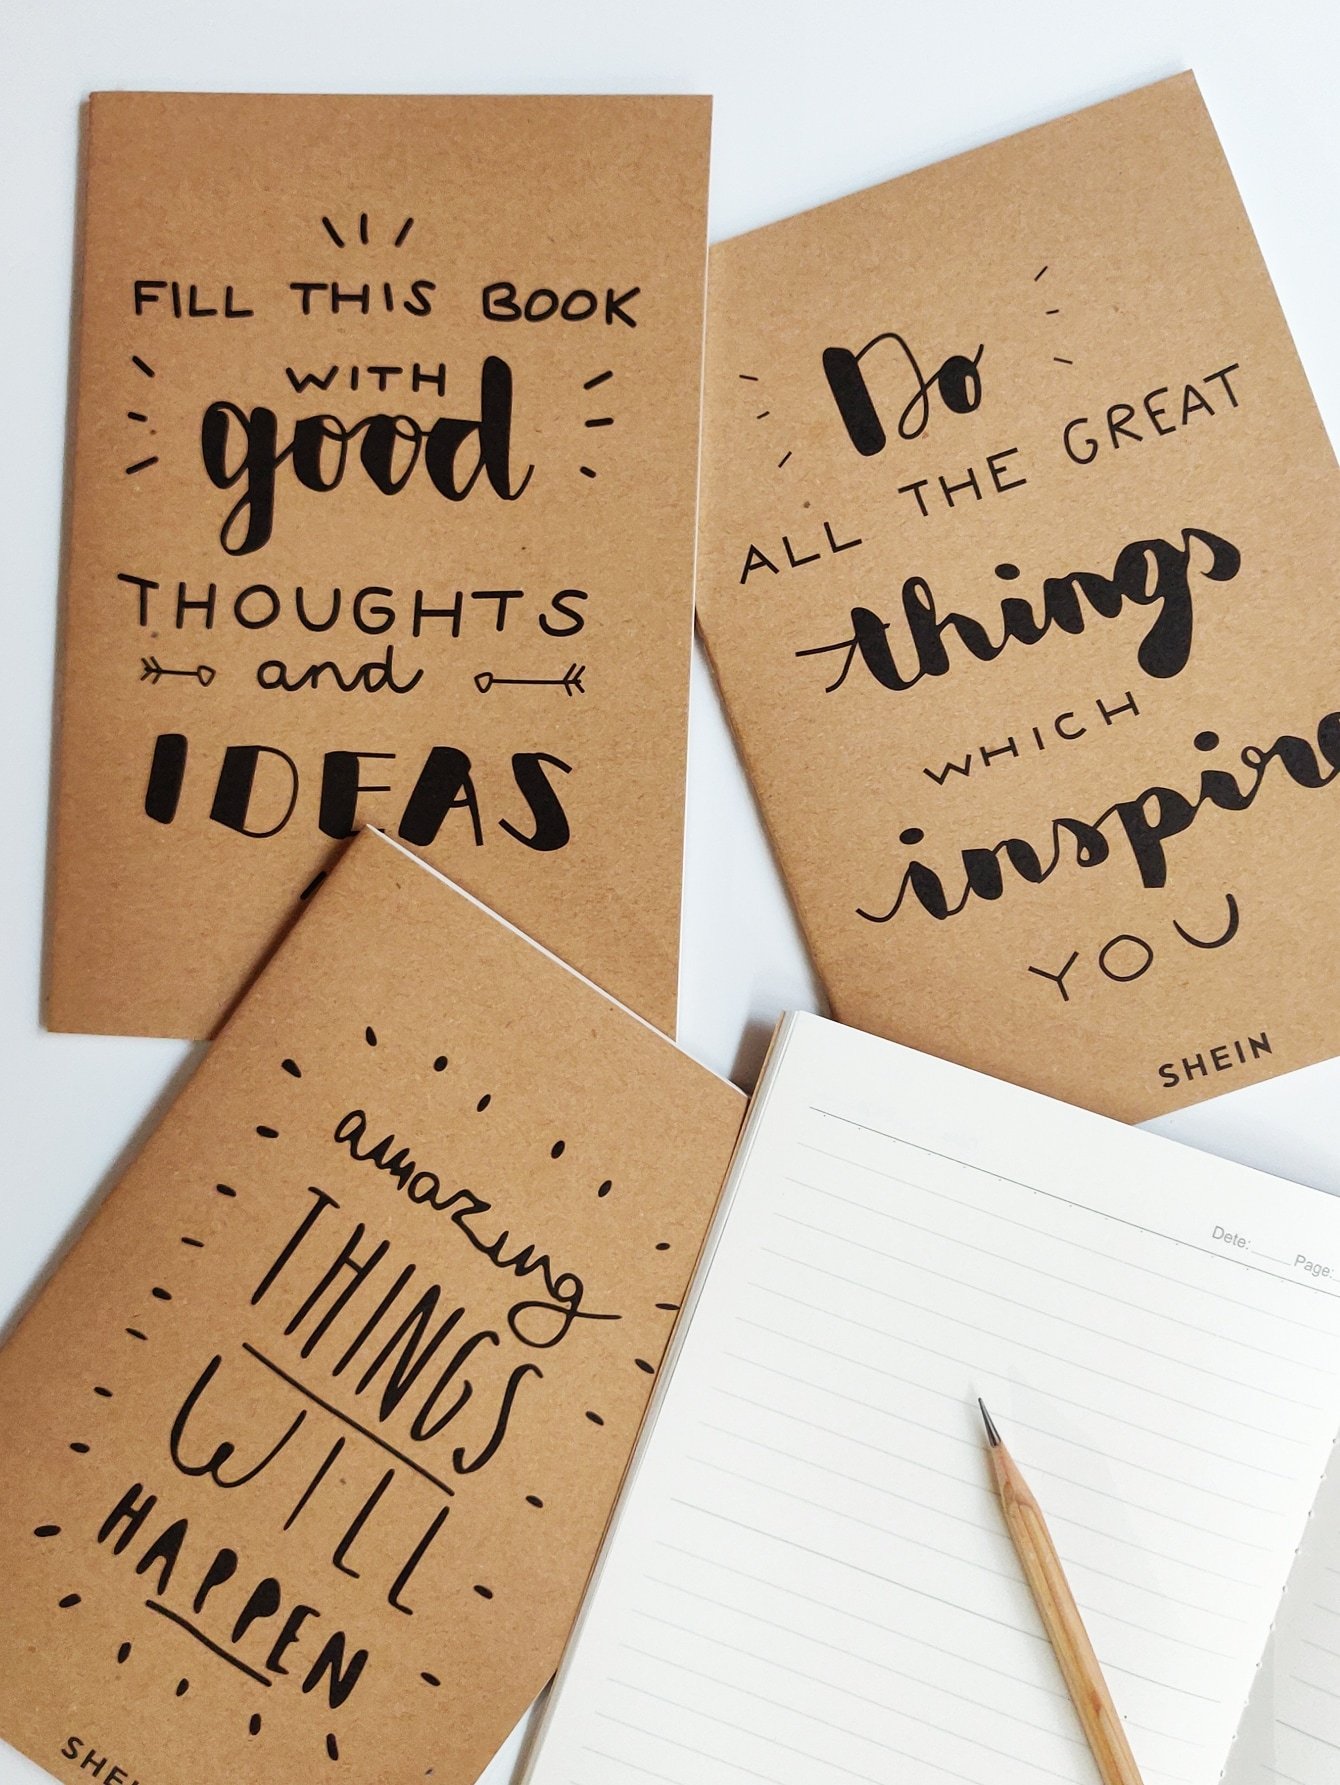 FILL THIS BOOK
WITH
good
THOUGHTS
and
IDEAS
Do
ALL THE GREAT
things
WHICH
inspire
YOU
SHEIN
amazing
THINGS
WILL
HAPPEN
SHEI
Dete: Page: